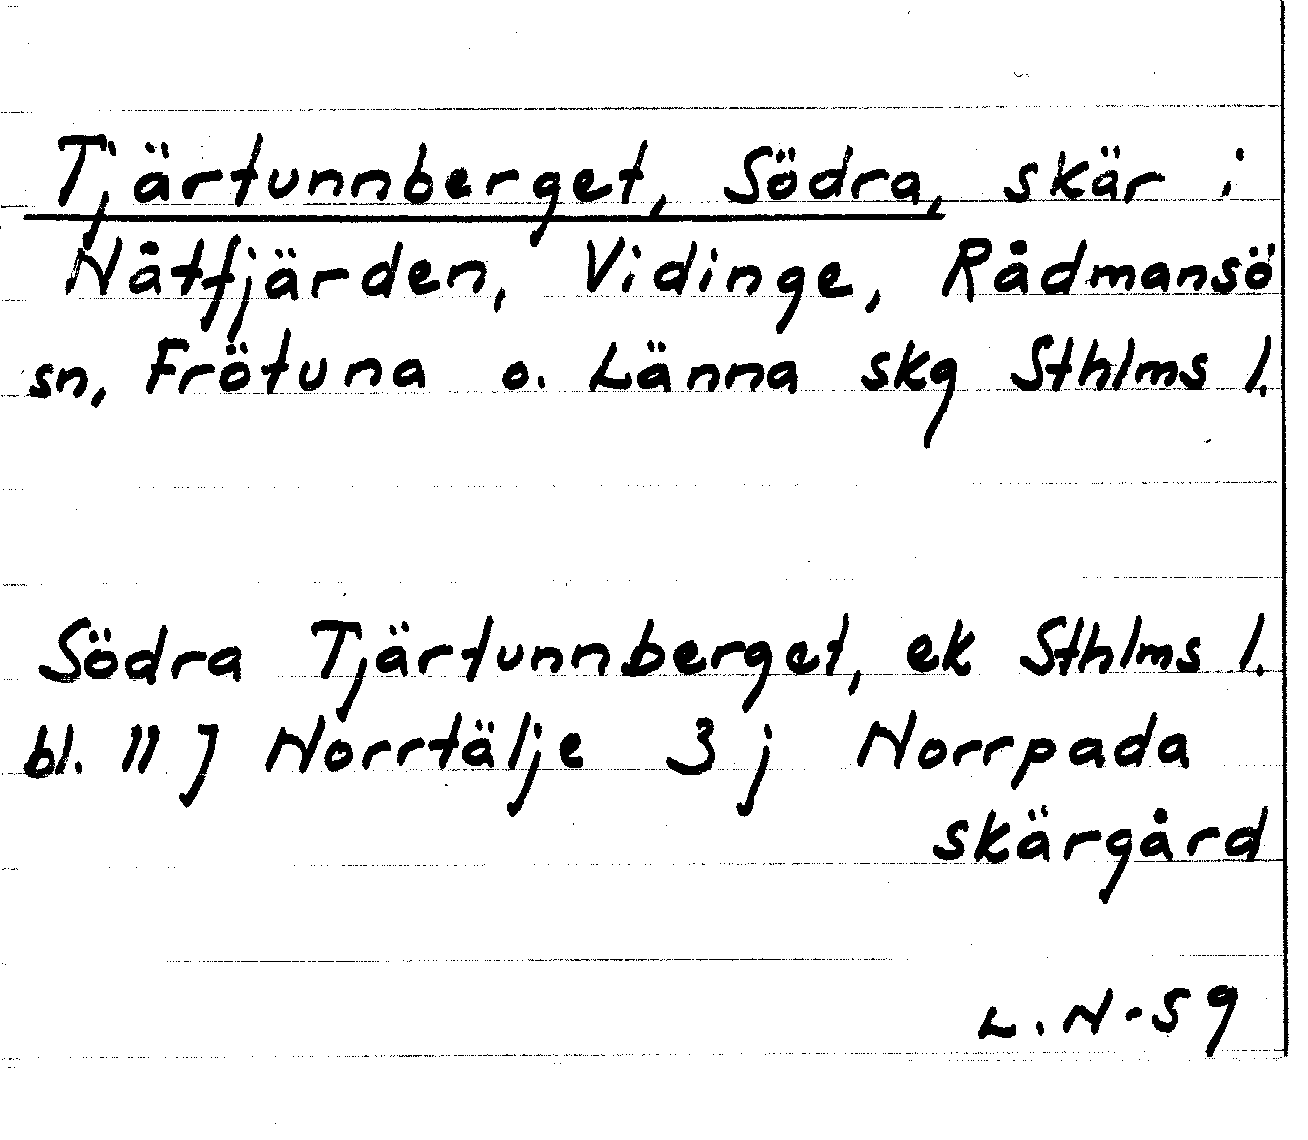 Tjärtunnberget, Södra, skär i
Nåtfjärden, Vidinge, Rådmansö
sn, Frötuna o. Länna skg Sthlms l.
Södra Tjärtunnberget, ek Sthlms l.
bl. 11 J Norrtälje 3 j Norrpada
skärgård
L. N-59